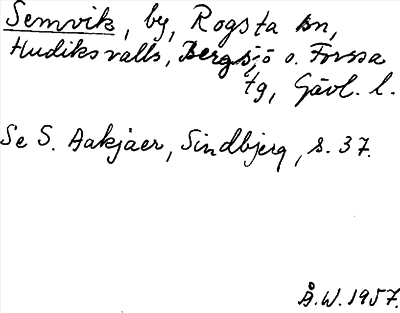 Semvik, by, Rogsta sn,
Hudiksvalls, Bergsjö o. Forssa
tg, Gävl. l.
Se S. Aakjaer, Sindbjerg, s. 37.
Å.W. 1957.